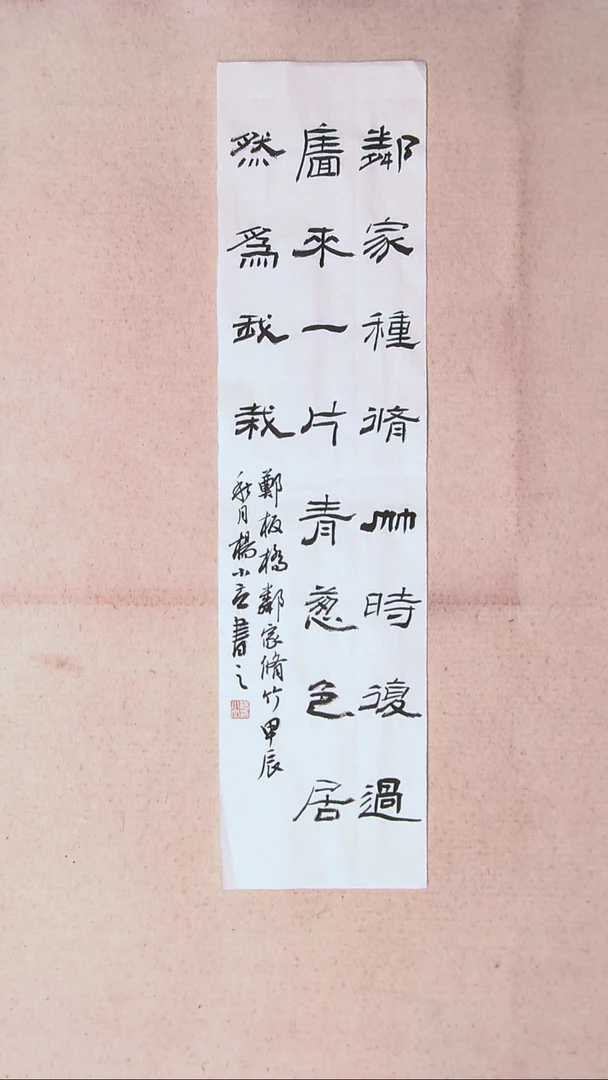 鄰家種脩竹時復過
廧來一片青葱色居
然爲我栽
鄭板橋鄰家脩竹甲辰
秋月楊小書之